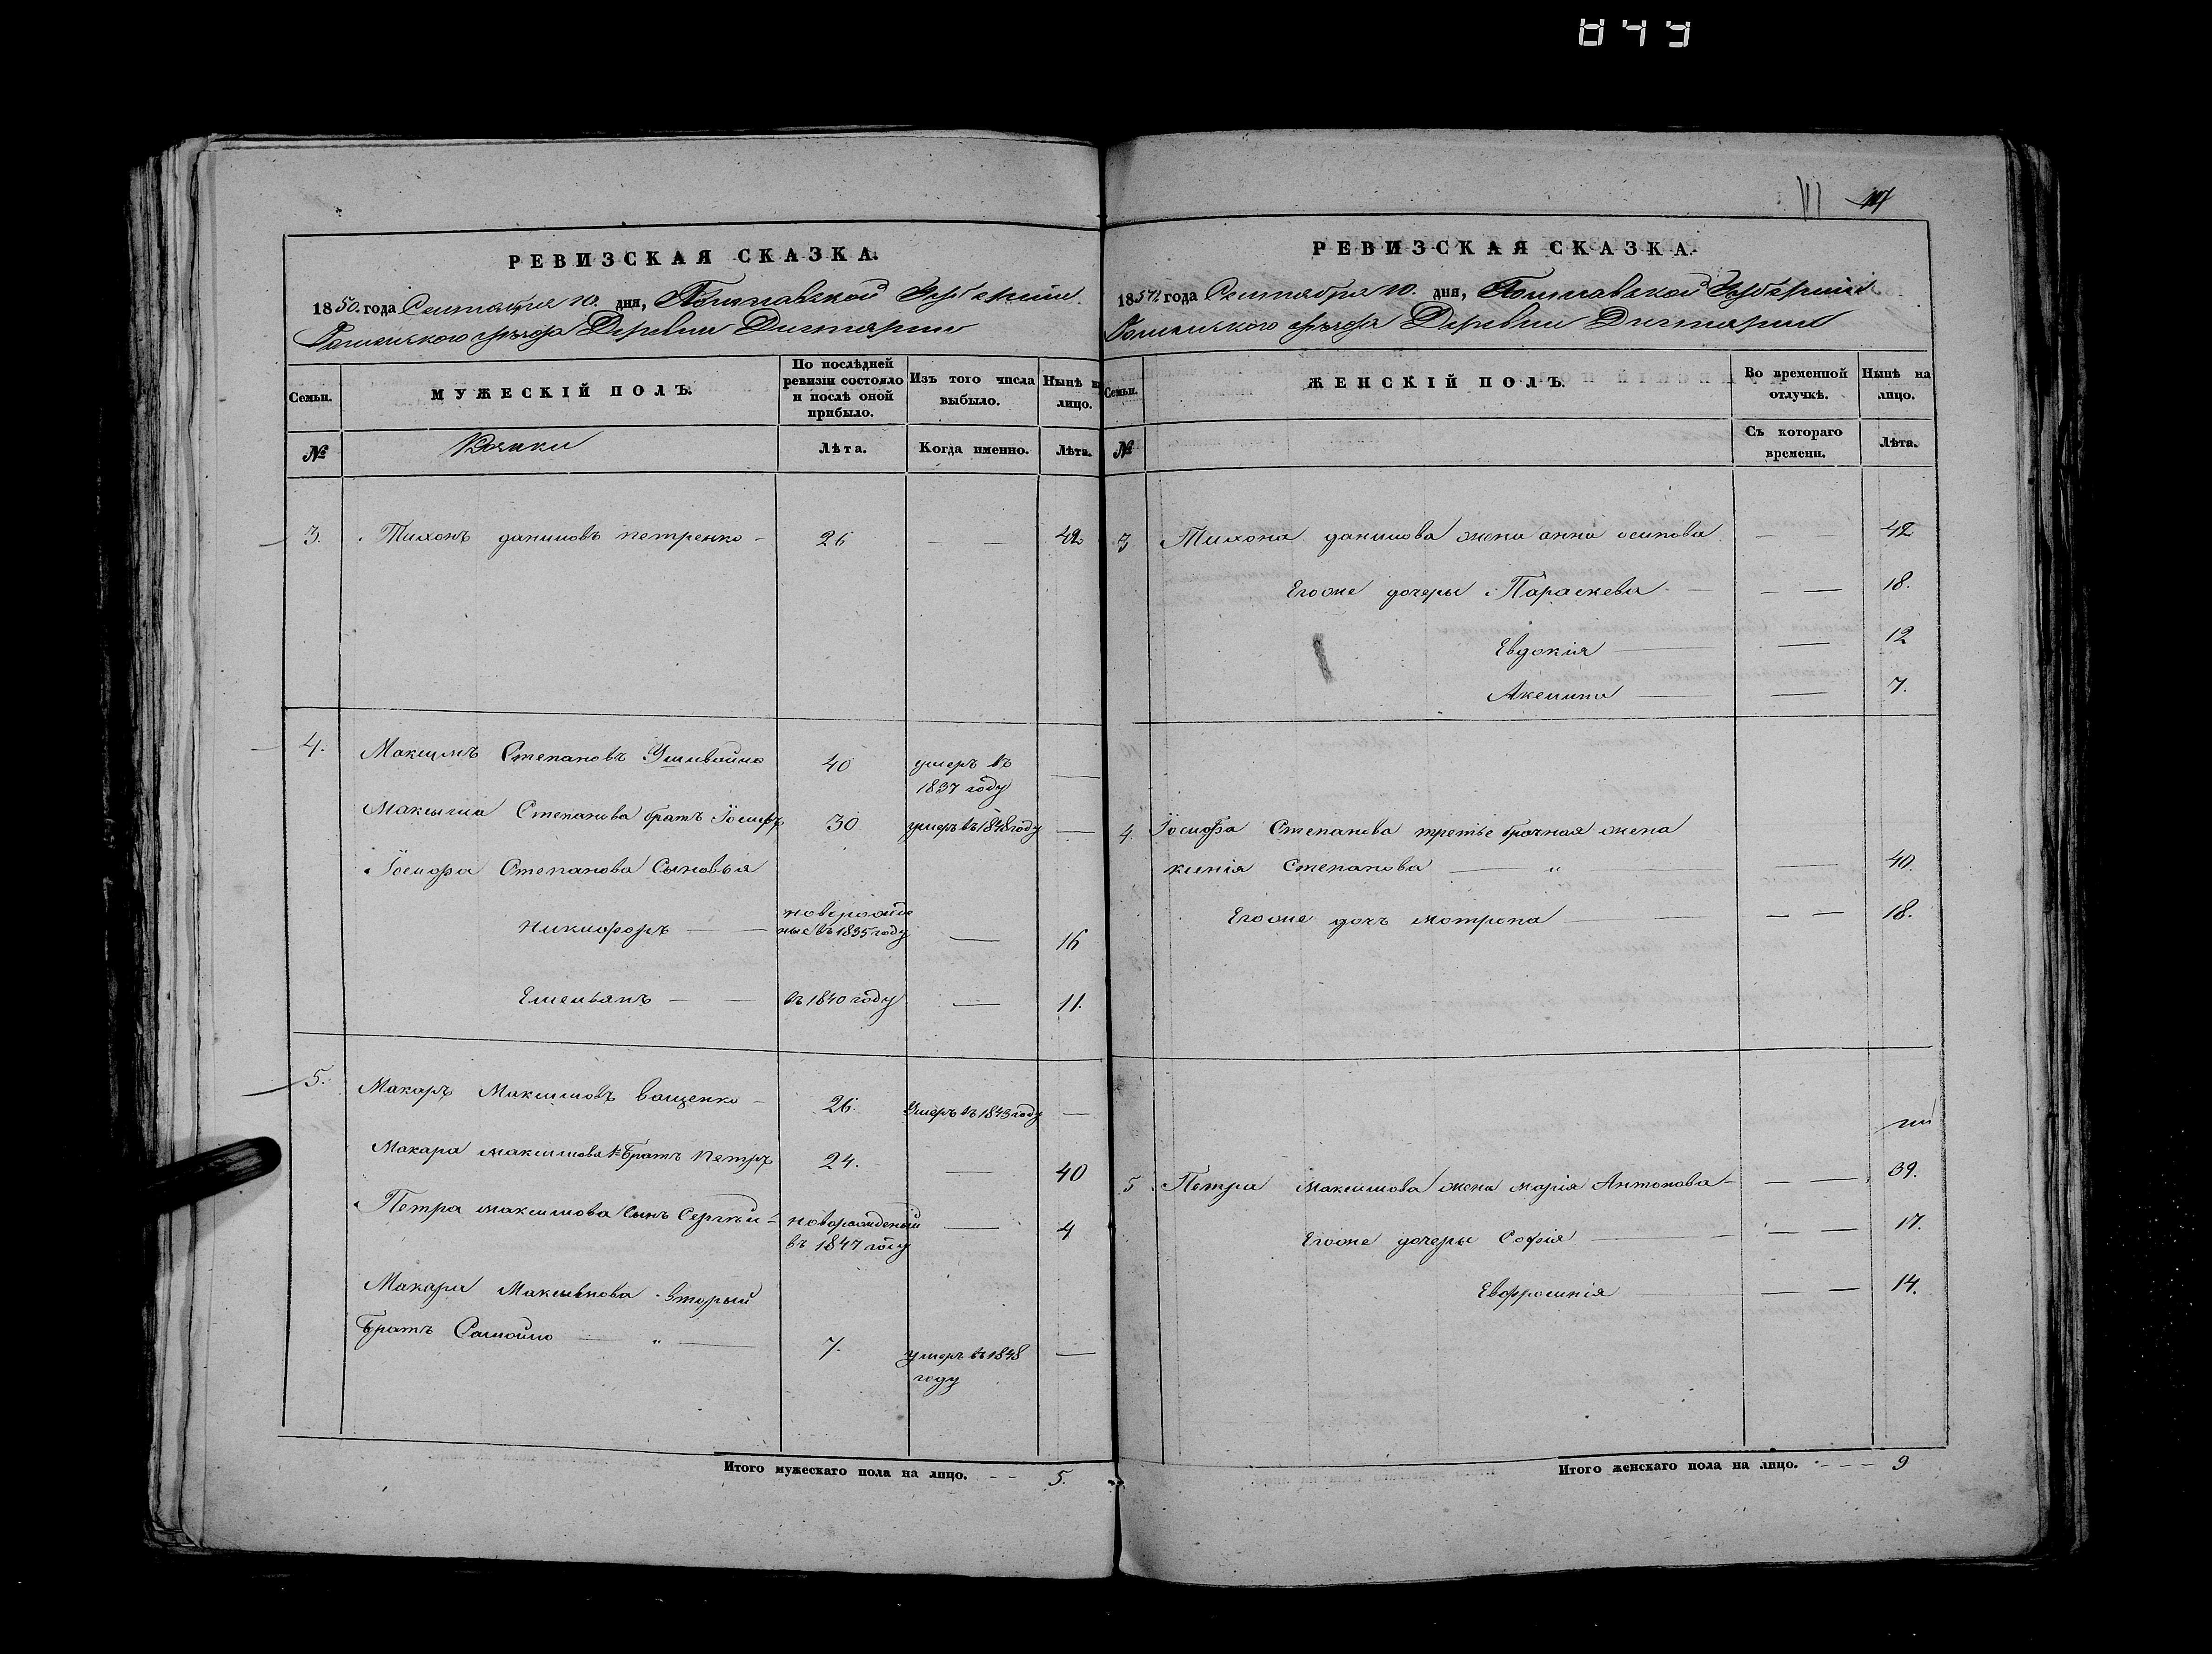 849
РЕВИЗСКАЯ СКАЗКА.
1850 года Сентября 10. дня, Полтавской Губернии
уѣзда Деревни Дигтярки
Семьи.
МУЖЕСКІЙ ПОЛЪ.
По послѣдней ревизіи состояло и послѣ оной прибыло.
Изъ того числа выбыло.
Нынѣ на лицо.
№
Козаки
Лѣта.
Когда именно.
Лѣта.
3. Тихонъ даниловъ петренко - 26 — — 42
4. Максимъ Степановъ 40 умеръ въ 1837 году —
Максима Степанова братъ Іосифъ 30 умеръ въ 1848 году —
Іосифа Степанова Сыновья
никифоръ — — новорожденые въ 1835 году — 16
Емельянъ — — въ 1840 году — 11.
5. Макаръ Максимовъ ващенко - 26. Умеръ въ 1843 году —
Макара максимова 1й Братъ петръ 24. — 40
Петра максимова Сынъ Сергѣй - новорожденый въ 1847 году — 4
Макара Максимова вторый
Братъ Самойло — " — 7. умеръ въ 1848 году —
Итого мужескаго пола на лицо. - - 5.
РЕВИЗСКАЯ СКАЗКА.
1850 года Сентября 10. дня, Полтавской Губернии
уѣзда Деревни Дигтярки
Семьи.
ЖЕНСКІЙ ПОЛЪ.
Во временной отлучкѣ.
Нынѣ на лицо.
№
Съ котораго времени.
Лѣта.
3 Тихона данилова жена анна осипова — — 42
Егоже дочеры Параскева — — — 18.
Евдокія — — 12
Акелина — — 7.
4. Іосифа Степанова третье брачная жена
ксенія Степанова — " — — 40.
Егоже дочь мотрона — — — — 18.
5 Петра максимова жена марія Антонова - — — 39.
Егоже дочеры Софія — — — 17.
Евфросинія — — — 14.
Итого женскаго пола на лицо. - - - 9